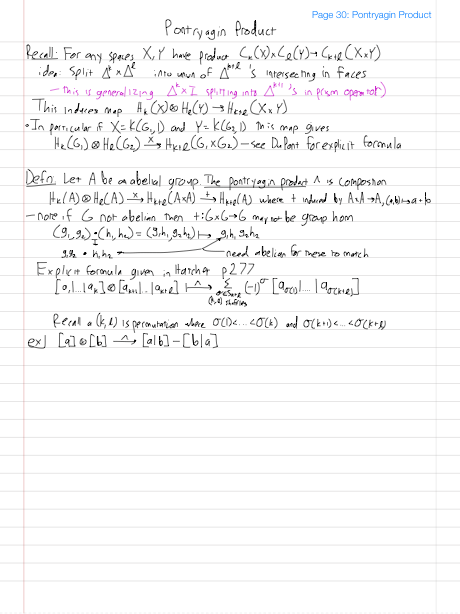 Page 30: Pontryagin Product
Pontryagin Product
Recall: For any spaces X, Y have product C_k(X)×C_l(Y)→C_{k+l}(X×Y)
idea: Split Δ^k×Δ^l into union of Δ^{k+l}'s intersecting in faces
— this is generalizing Δ^k×I splitting into Δ^{k+1}'s in prism operator)
This induces map H_k(X)⊗H_l(Y)→H_{k+l}(X×Y)
• In particular if X=K(G_1,1) and Y=K(G_2,1) this map gives
H_k(G_1)⊗H_l(G_2) →^× H_{k+l}(G_1×G_2) — see DuPont for explicit formula
Defn: Let A be an abelian group. The pontryagin product ∧ is composition
H_k(A)⊗H_l(A) →^× H_{k+l}(A×A) →^+ H_{k+l}(A) where + induced by A×A→A, (a,b)↦a+b
— note if G not abelian then +: G×G→G may not be group hom
(g_1,g_2)•(h_1,h_2) = (g_1h_1,g_2h_2) ↦ g_1h_1g_2h_2
g_1g_2 • h_1h_2 need abelian for these to match
Explicit formula given in Hatcher p277
[a_1|...|a_k]⊗[a_{k+1}|...|a_{k+l}] →^∧ Σ_{σ∈S_{k+l} (k,l) shuffles} (-1)^σ [a_{σ(1)}|...|a_{σ(k+l)}]
Recall a (k,l) is permutation where σ(1)<...<σ(k) and σ(k+1)<...<σ(k+l)
ex] [a]⊗[b] →^∧ [a|b]-[b|a]